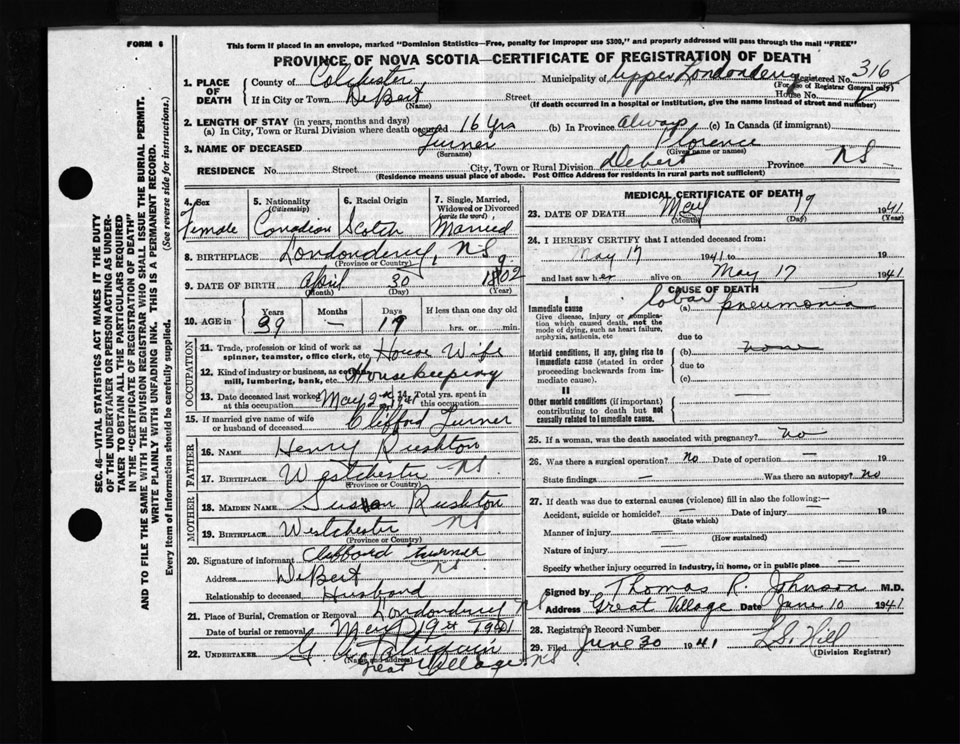 FORM 6
This form if placed in an envelope, marked "Dominion Statistics—Free, penalty for improper use $300," and properly addressed will pass through the mail "FREE"
PROVINCE OF NOVA SCOTIA—CERTIFICATE OF REGISTRATION OF DEATH
SEC. 46—VITAL STATISTICS ACT MAKES IT THE DUTY
OF THE UNDERTAKER OR PERSON ACTING AS UNDER-
TAKER TO OBTAIN ALL THE PARTICULARS REQUIRED
IN THE "CERTIFICATE OF REGISTRATION OF DEATH"
AND TO FILE THE SAME WITH THE DIVISION REGISTRAR WHO SHALL ISSUE THE BURIAL PERMIT.
WRITE PLAINLY WITH UNFADING INK. THIS IS A PERMANENT RECORD.
Every item of information should be carefully supplied. (See reverse side for instructions.)
1. PLACE OF DEATH County of Colchester Municipality of Upper Londonderry Registered No. 316
(For use of Registrar General only)
If in City or Town Debert (Name) Street House No.
(If death occurred in a hospital or institution, give the name instead of street and number)
2. LENGTH OF STAY (in years, months and days)
(a) In City, Town or Rural Division where death occurred 16 Yrs (b) In Province Always (c) In Canada (if immigrant)
3. NAME OF DECEASED Turner Florence
(Surname) (Given name or names)
RESIDENCE No. Street City, Town or Rural Division Debert Province NS
(Residence means usual place of abode. Post Office Address for residents in rural parts not sufficient)
4. Sex 5. Nationality (Citizenship) 6. Racial Origin 7. Single, Married, Widowed or Divorced (write the word)
Female Canadian Scotch Married
8. BIRTHPLACE Londonderry, NS
(Province or Country)
9. DATE OF BIRTH April 30 1902
(Month) (Day) (Year)
10. AGE in Years Months Days If less than one day old
39 — 19 hrs. or min.
OCCUPATION
11. Trade, profession or kind of work as spinner, teamster, office clerk, etc. House Wife
12. Kind of industry or business, as cotton mill, lumbering, bank, etc. Housekeeping
13. Date deceased last worked at this occupation May 2nd 1941 14. Total yrs. spent in this occupation
15. If married give name of wife or husband of deceased Clifford Turner
FATHER
16. NAME Henry Rushton
17. BIRTHPLACE Westchester NS
(Province or Country)
MOTHER
18. MAIDEN NAME Susan Rushton
19. BIRTHPLACE Westchester NS
(Province or Country)
20. Signature of informant Clifford Turner
Address Debert NS
Relationship to deceased Husband
21. Place of Burial, Cremation or Removal Londonderry NS
Date of burial or removal May 19th 1941
22. UNDERTAKER
(Name and address)
Great Village NS
MEDICAL CERTIFICATE OF DEATH
23. DATE OF DEATH May 19 1941
(Month) (Day) (Year)
24. I HEREBY CERTIFY that I attended deceased from:
May 17 1941 to 19
and last saw her alive on May 17 1941
CAUSE OF DEATH
I
Immediate cause (a) lobar pneumonia
Give disease, injury or complication which caused death, not the mode of dying, such as heart failure, asphyxia, asthenia, etc
due to
Morbid conditions, if any, giving rise to immediate cause (stated in order proceeding backwards from immediate cause). (b) none
due to
(c)
II
Other morbid conditions (if important) contributing to death but not causally related to immediate cause. —
25. If a woman, was the death associated with pregnancy? no
26. Was there a surgical operation? no Date of operation — 19
State findings — Was there an autopsy? no
27. If death was due to external causes (violence) fill in also the following:—
Accident, suicide or homicide? — Date of injury — 19
(State which)
Manner of injury —
(How sustained)
Nature of injury —
Specify whether injury occurred in industry, in home, or in public place —
Signed by Thomas R. Johnson M.D.
Address Great Village Date June 10 1941
28. Registrar's Record Number
29. Filed June 30 1941 L.S. Hill
(Division Registrar)